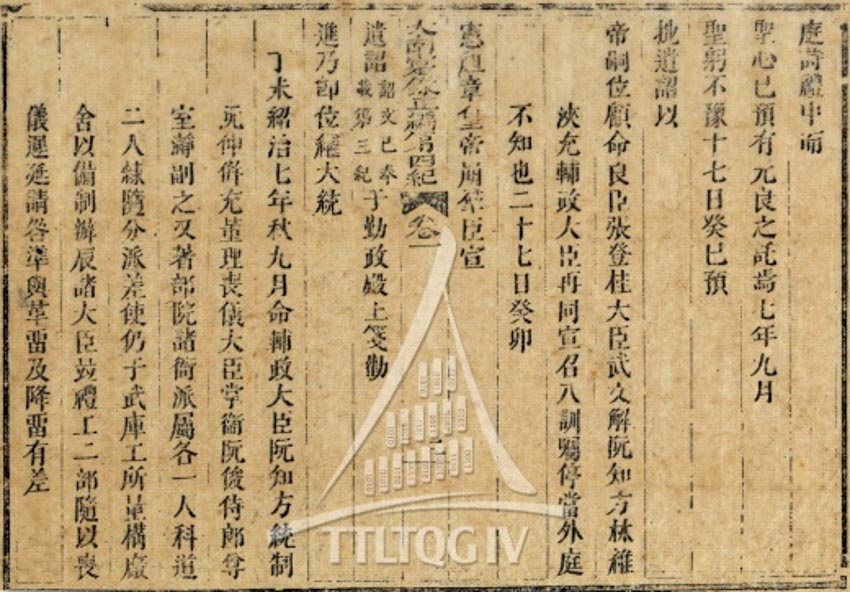 庭詩禮中而
聖心已預有元良之託焉七年九月
聖躬不豫十七日癸巳預
批遺詔以
帝嗣位顧命良臣張登桂大臣武文解阮知方林維
浹充輔政大臣再同宣召入訓囑停當外庭
不知也二十七日癸卯
憲祖章皇帝崩羣臣宣
大南寔錄正編第四紀 卷一 二
遺詔 詔文已奉載第三紀 于勤政殿上箋勸
進乃卽位纘大統
丁未紹治七年秋九月命輔政大臣阮知方統制
阮仲併充董理喪儀大臣掌衞阮俊侍郎尊
室靜副之又著部院諸衙派屬各一人科道
二人隸隨分派差使仍于武庫工所量構廠
舍以備制辦辰諸大臣並禮工二部隨以喪
儀遲延請咎準興革留及降留有差
TTLTQG IV